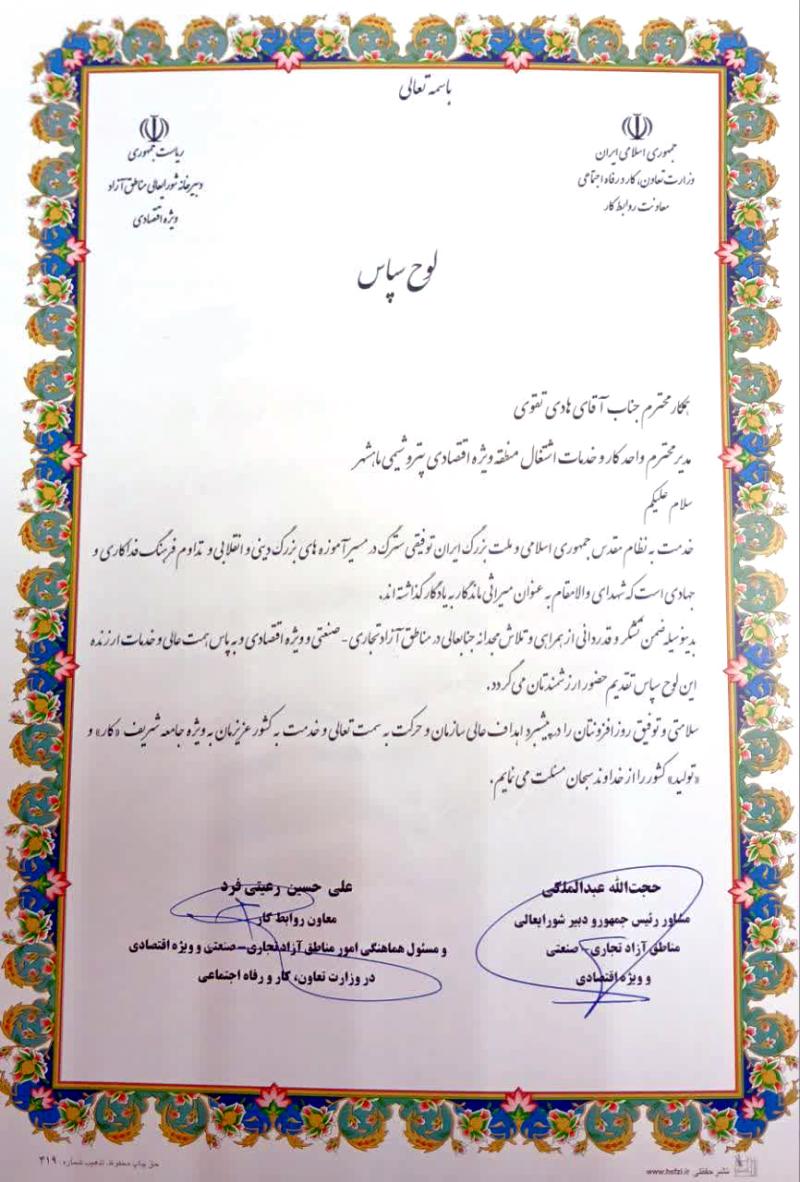 باسمه تعالی
جمهوری اسلامی ایران
وزارت تعاون، کار و رفاه اجتماعی
معاونت روابط کار
ریاست جمهوری
دبیرخانه شورایعالی مناطق آزاد
ویژه اقتصادی
لوح سپاس
همکار محترم جناب آقای هادی تقوی
مدیر محترم واحد کار و خدمات اشتغال منطقه ویژه اقتصادی پتروشیمی ماهشهر
سلام علیکم
خدمت به نظام مقدس جمهوری اسلامی و ملت بزرگ ایران توفیقی سترگ در مسیر آموزه های بزرگ دینی و انقلابی و تداوم فرهنگ فداکاری و
جهادی است که شهدای والامقام به عنوان میراثی ماندگار به یادگار گذاشته اند.
بدینوسیله ضمن تشکر و قدردانی از همراهی و تلاش مجدانه جنابعالی در مناطق آزاد تجاری - صنعتی و ویژه اقتصادی و به پاس همت عالی و خدمات ارزنده
این لوح سپاس تقدیم حضور ارزشمندتان می گردد.
سلامتی و توفیق روزافزونتان را در پیشبرد اهداف عالی سازمان و حرکت به سمت تعالی و خدمت به کشور عزیزمان به ویژه جامعه شریف «کار» و
«تولید» کشور را از خداوند سبحان مسئلت می نمایم.
حجت‌الله عبدالملکی
مشاور رئیس جمهور و دبیر شورایعالی
مناطق آزاد تجاری- صنعتی
و ویژه اقتصادی
علی حسین رعیتی فرد
معاون روابط کار
و مسئول هماهنگی امور مناطق آزاد تجاری- صنعتی و ویژه اقتصادی
در وزارت تعاون، کار و رفاه اجتماعی
نشر حفظی www.hefzi.ir
حق چاپ محفوظ. تذهیب شماره: ۴۱۹